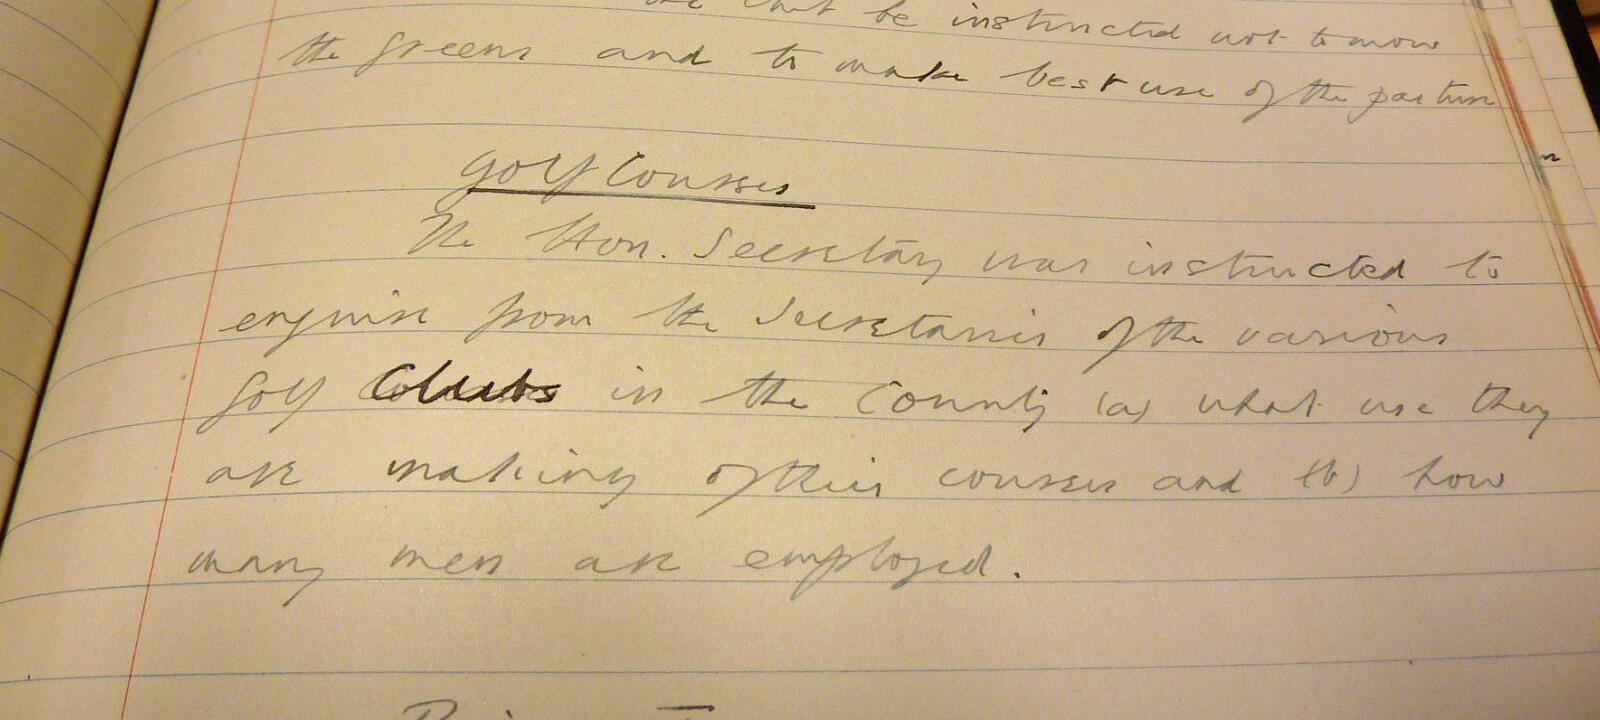 be instructed not to mow
the greens and to make best use of the pasture
Golf Courses
The Hon. Secretary was instructed to
enquire from the Secretaries of the various
golf Clubs in the County (a) what use they
are making of their courses and (b) how
many men are employed.